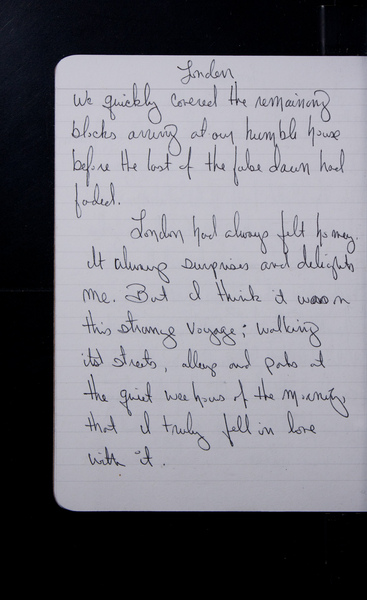 London
We quickly covered the remaining
blocks arriving at our humble house
before the last of the false dawn had
faded.
London had always felt homey.
It always surprises and delights
me. But I think it was on
this strange voyage; walking
its streets, alleys and parks at
the quiet wee hours of the morning,
that I truly fell in love
with it.